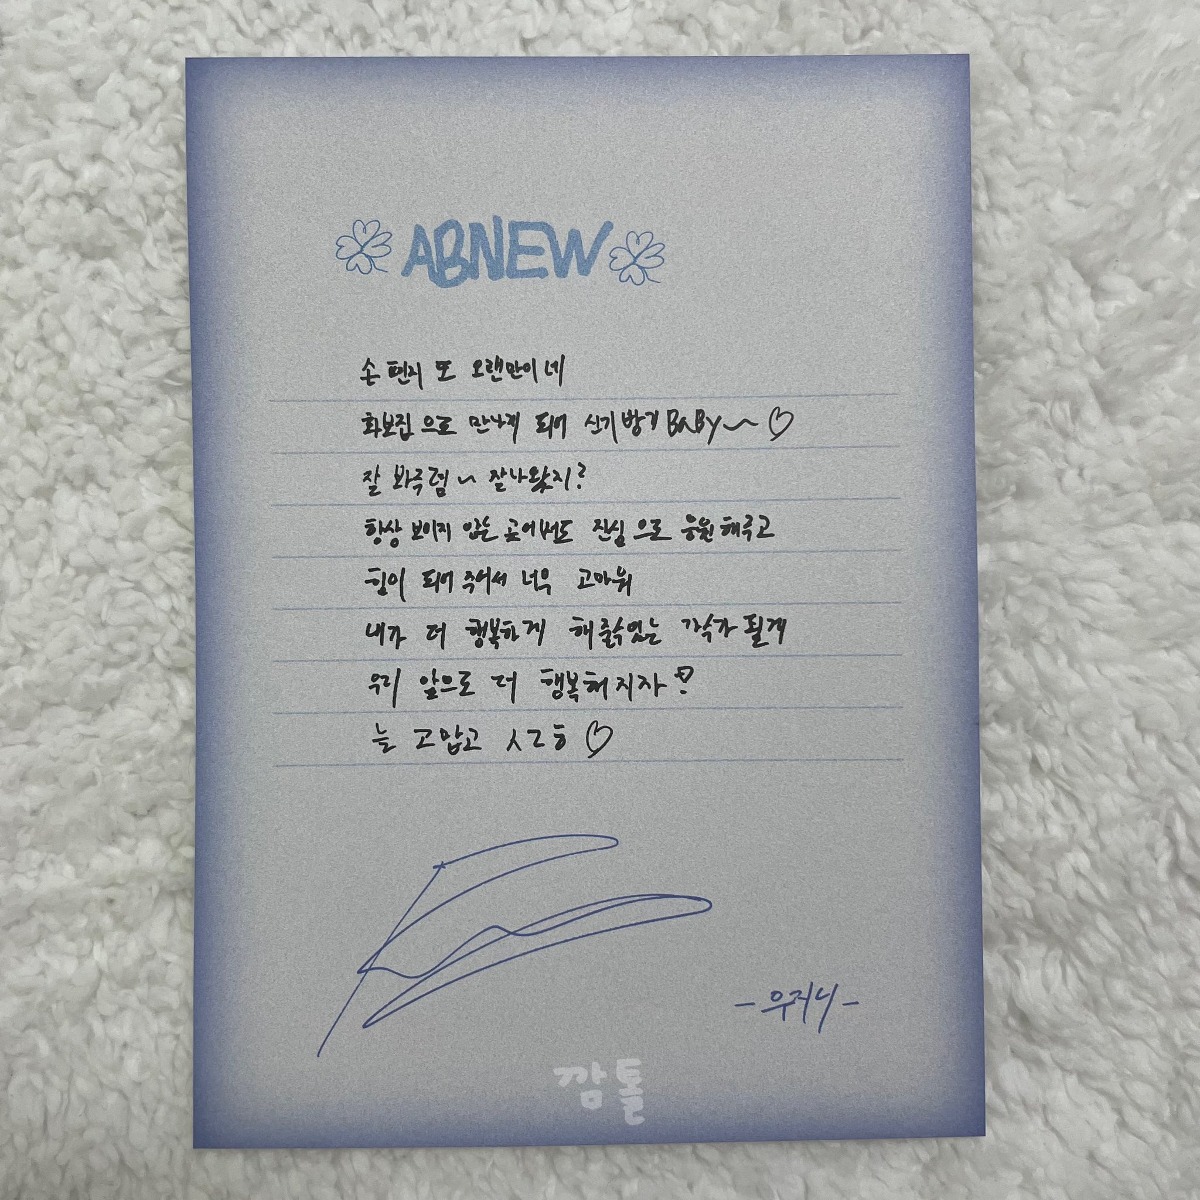 ABNEW
손 편지 또 오랜만이네
화보집 으로 만나게 되어 신기방기 BaBy~ ♡
잘 봐주렴 ~ 잘나왔지?
항상 보이지 않는 곳에서도 진심으로 응원해주고
힘이 되어 주어서 너무 고마워
내가 더 행복하게 해줄수있는 가수가 될게
우리 앞으로 더 행복해지자
늘 고맙고 ㅅㄹㅎ ♡
-우지니-
깜톨